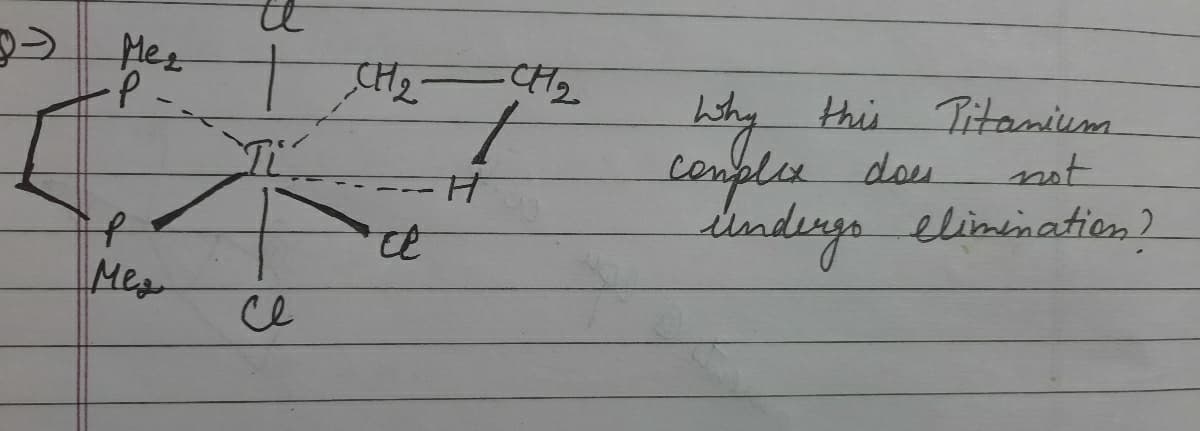 Q→)
Cl
Me2
P
CH2 — CH2
Ti
H
P
Cl
Me2
Cl
Why this Titanium
complex does not
Undergo elimination?